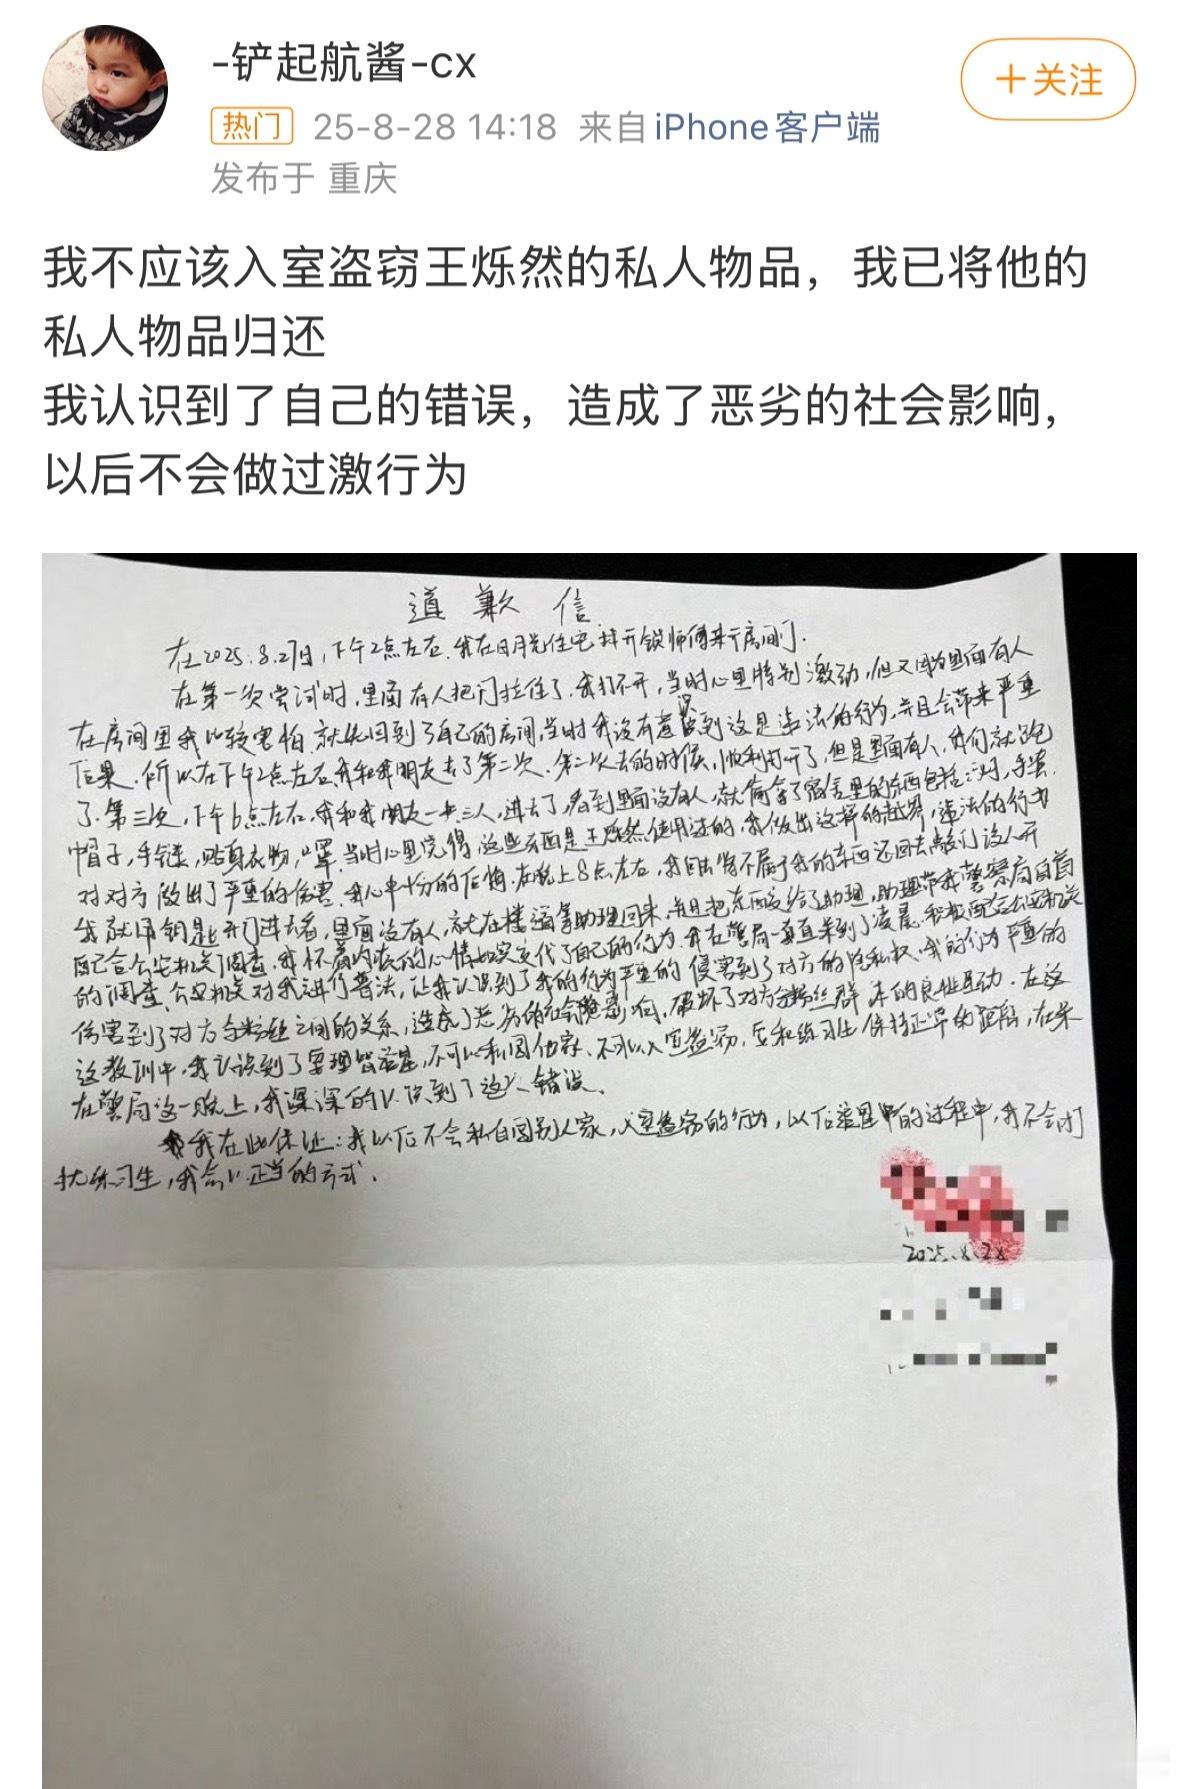 -铲起航酱-cx
+关注
热门 25-8-28 14:18 来自 iPhone客户端
发布于 重庆
我不应该入室盗窃王烁然的私人物品，我已将他的
私人物品归还
我认识到了自己的错误，造成了恶劣的社会影响，
以后不会做过激行为
道歉信
在2025.8.27日，下午2点左右，我在日月光住宅找开锁师傅来开房间门.
在第一次尝试时，里面有人把门拉住了，我打不开，当时心里特别激动，但又因为里面有人
在房间里我比较害怕，就先回到了自己的房间，当时我没有意识到这是违法的行为，并且会带来严重
后果，所以在下午2点左右我和我朋友去了第二次，第二次去的时候，顺利打开了，但是里面有人，我们就跑
了，第三次，下午6点左右，我和我朋友一共三人，进去了，看到里面没有人，就偷拿了宿舍里的东西包括：
帽子，手链，贴身衣物，口罩，当时心里觉得，这些东西是王烁然使用过的，我做出这样的越界，违法的行为
对对方做出了严重的伤害，我心中十分的后悔，在晚上8点左右，我回去将不属于我的东西还回去，敲门没人开
我就用钥匙开门进去看，里面没有人，就在楼道等助理回来，并且把东西交给了助理，助理带我警察局自首
配合公安机关调查，我怀着内疚的心情如实交代了自己的行为，我在警局一直呆到了凌晨，积极配合公安机关
的调查，公安机关对我进行普法，让我认识到了我的行为严重的侵害到了对方的隐私权，我的行为严重的
伤害到了对方与粉丝之间的关系，造成了恶劣的社会影响，破坏了对方与粉丝群体的良性互动，在这
这教训中，我认识到了要理智追星，不可以私闯他家，不可以入室盗窃，要和练习生保持正常的距离，在呆
在警局这一晚上，我深深的认识到了这个错误。
我在此保证：我以后不会私自闯别人家，入室盗窃的行为，以后追星中的过程中，我不会打
扰练习生，我会以正当的方式.
2025.8.28